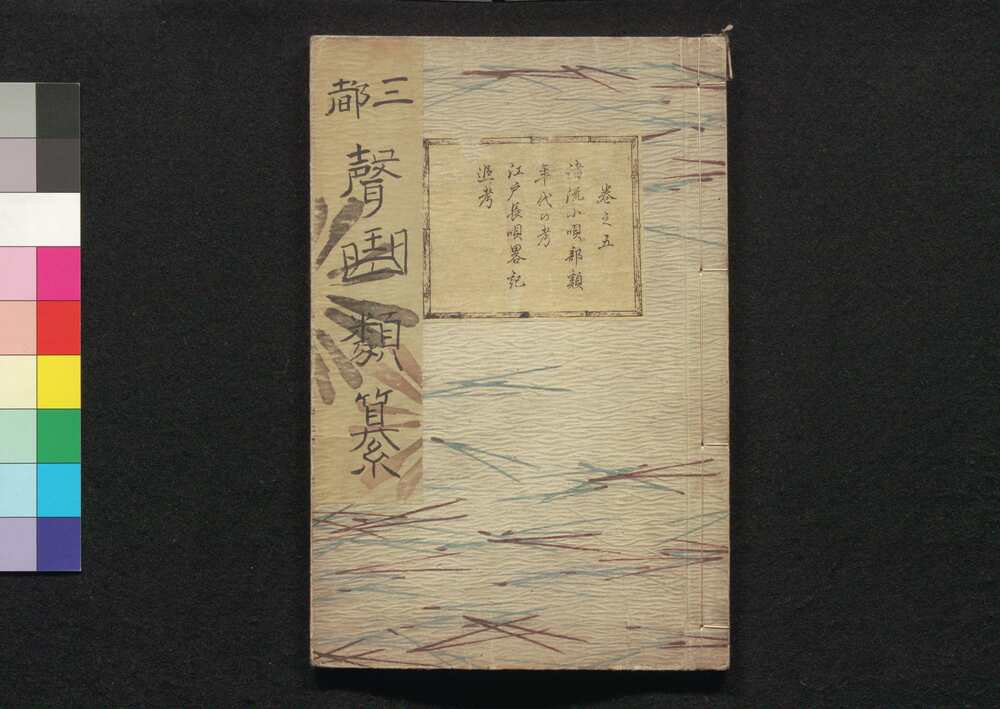 三都
聲曲類纂
卷之五
諸流小唄部類
年代の考
江戸長唄畧記
追考